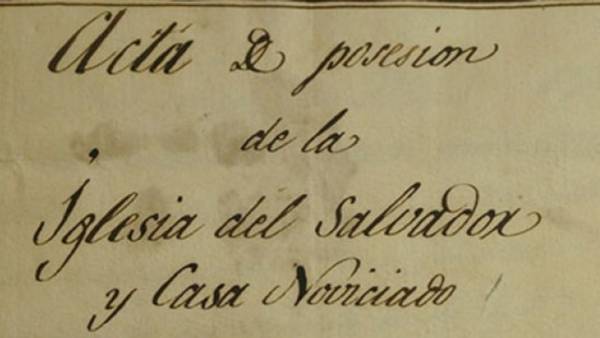 Acta D posesion
de la
Iglesia del Salvador
y Casa Noviciado